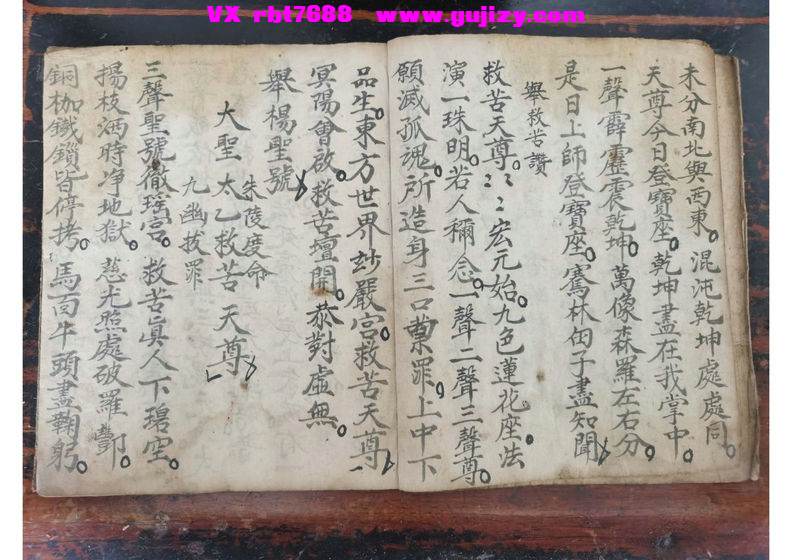 VX rbt7688 www.gujizy.com
未分南北與西東。混沌乾坤處處同。
天尊今日登寶座。乾坤盡在我掌中。
一聲霹靂震乾坤。萬像森羅左右分。
是日上師登寶座。騫林甸子盡知聞
舉救苦讚
救苦天尊。〻〻宏元始。九色蓮花座。法
演一珠明。若人稱念。一聲二聲三聲尊。
願滅孤魂。所造身三口業罪。上中下
品生。東方世界玅嚴宮。救苦天尊
冥陽會啟。救苦壇開。恭對虛無。
舉楊聖號
朱陵度命
大聖 太乙救苦 天尊
九幽拔罪
三聲聖號徹瑤宮。救苦眞人下碧空。
揚枝洒時净地獄。慈光照處破羅酆。
銅枷鐵鎖皆停拷。馬面牛頭盡鞠躬。